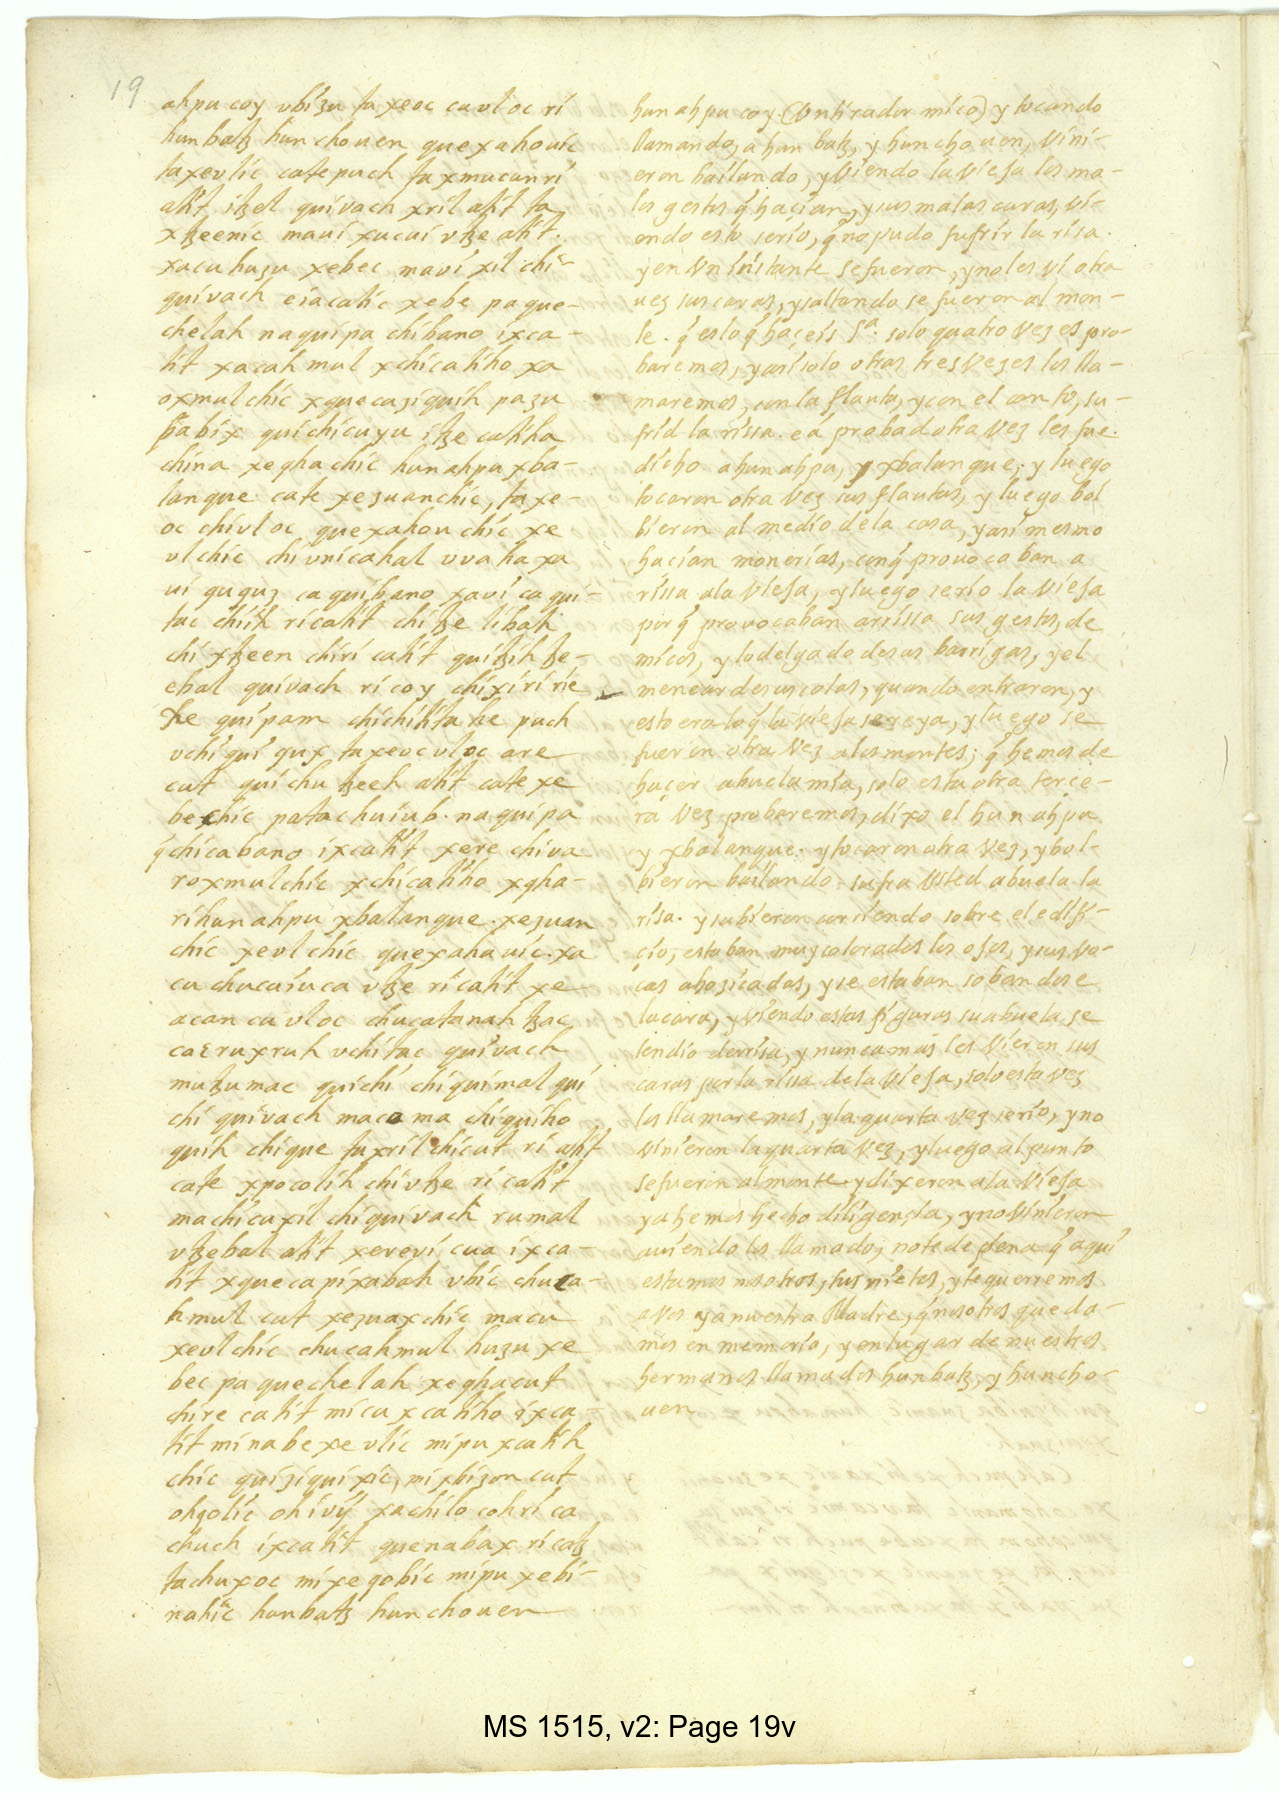 19
ahpu coy ubiꜫu ta xeoc ca vloc ri
hunbatꜫ hunchouen quexahouic
ta xevlic catepuch ta xmucun ri
atit itzel quivach xril atit ta
xtzeenic maui xucui vtze atit.
xacu huꜫu xebec maui xil chic
quivach eiacatic xebe pa que-
chelah naquipa chibano ixca-
tit xacah mul xchicatiho xa
oxmul chic xquecaꜫiquih pa ꜫu
pa bix quichicuyu itze catiha
china xegha chic hunahpu xba-
lanque cate xeꜫuan chic, ta xe-
oc chivloc quexahou chic xe
vlchic chi unicahal uvaha xa
ui ququꜫ caquibano xaui caqui-
tac chiih ricatit chi tze libah
chi xtzeen chiri catit quitzih tze-
ebal quivach ri coy chixiririe
xe quipam chichilita he puch
uchi qui qux ta xeoc vloc are
cut quichu tzeeh atit cate xe
bechic pata chuiub. naquipa
q̃ chicabano ixcatit xere chiva
roxmulchic xchicatiho xgha-
ri hunahpu xbalanque. xeꜫuan
chic xevl chic quexahauic. xa
cu chucuiuca utze ri catit xe
acan ca vloc chucatanah tzac
caꜫruxruh uchitac quivach
mutzumac quichi chiquimal qui
chi quivach macama chiquiho
quih chique ta xril chicut ri atit
cate xpocolih chi vtze ri catit
machicuxil chiquivach rumal
utzebal atit xerevi cua ixca-
tit xquecapixabah ubic chuca-
hmul cut xeꜫuax chic macu
xevlchic chucahmul huꜫu xe
bec pa quechelah xeghacut
chire catit micu xcatiho ixca-
tit minabe xevlic mipu xcatih
chic quiꜫiquixic, mixbiꜫon cut
ohgolic oh ivỹ xachilo coh ri ca
chuch ixcatit quenabax ri catz
tachuxoc mixegobic mipu xebi-
nahic hunbatꜫ hunchouen
hun ahpu coy. (Vn tirador mico) y tocando
llamando, a hun batꜫ, y hun chouen, vini-
eron bailando, y viendo la vieja los ma-
los gestos q̃ haçian, y sus malas caras, vi-
endo esto serio, q̃ no pudo sufrir la risa.
y en un instante se fueron, y no les vi otra
uez sus caras, y saltando se fueron al mon-
te. q̃ es lo q̃ haçeis Sᵃ. solo quatro vezes pro-
baremos, y asi solo otras tres vezes los lla-
maremos, con la flauta, y con el canto, su-
frid la rissa. ea probad otra vez les fue.
dicho a hun ahpu, y xbalanque; y luego
tocaron otra vez sus flautas, y luego bol
bieron al medio de la casa, y asi mesmo
haçian monerias, con q̃ provocaban a
rissa a la vieja, y luego serio la vieja
por q̃ provocaban a rissa sus gestos, de
micos, y lo delgado de sus barrigas, y el
menear de sus colas, quando entraron, y
esto era lo q̃ la vieja se reya, y luego se
fueron otra vez a los montes; q̃ hemos de
haçer abuela mia, solo esta otra terçe-
ra vez probaremos, dixo el hun ahpu
y xbalanque. y tocaron otra vez, y bol-
bieron bailando. sufra Usted abuela la
risa. y subieron corriendo sobre el edifi-
cio, estaban muy colorados los ojos, y sus bo-
cas ahoçicadas, y se estaban sobandose
la cara, y viendo estas figuras su abuela se
tendio de rrisa, y nunca mas les vieron sus
caras por la rissa de la vieja, solo esta vez
los llamaremos, y la quarta vez serio, y no
vinieron la quarta vez, y luego al punto
se fueron al monte. y dixeron a la vieja
ya hemos hecho diligençia, y no vinieron
aviendo los llamado; no te de pena q̃ aqui
estamos nosotros, tus nietos, y te querremos
a vos y a nuestra Madre, q̃ nosotros queda-
mos en memoria, y en lugar de nuestros
hermanos llamados hunbatꜫ, y huncho-
uen
MS 1515, v2: Page 19v